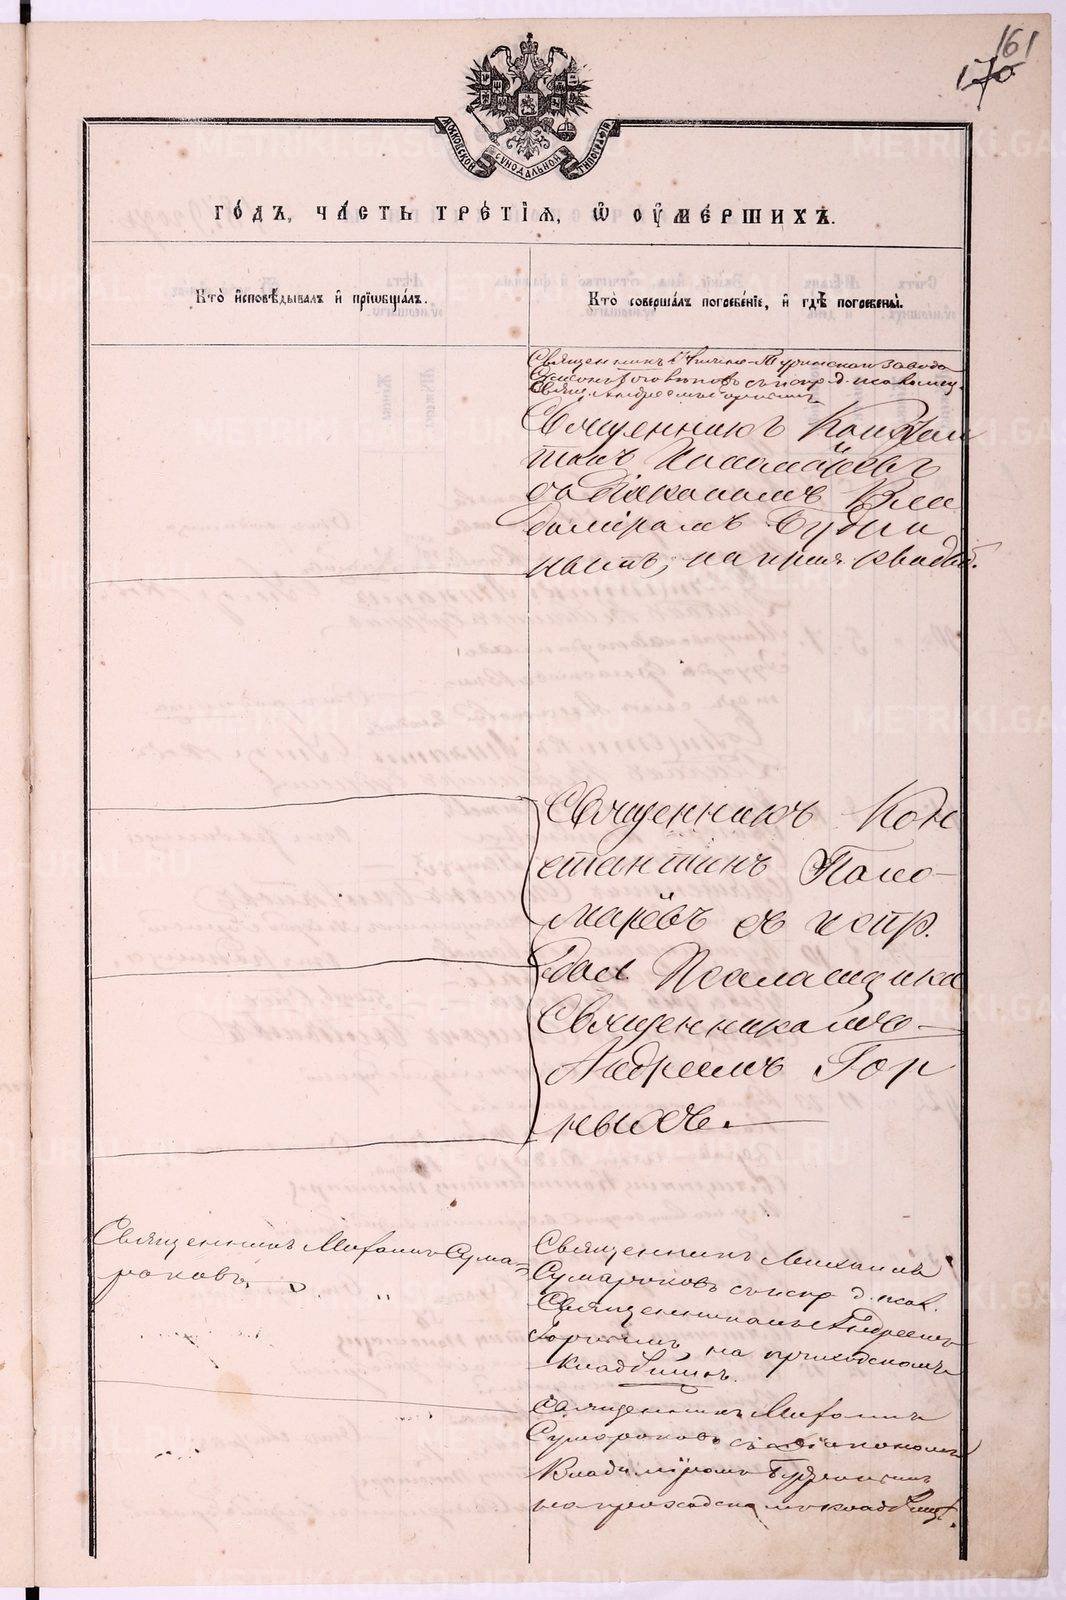 161
170
МОСКОВСКОЙ СУНОДАЛЬНОЙ ТИПОГРАФІИ
ГО́ДЪ, ЧА́СТЬ ТРЕ́ТІѦ, Ѡ҆ ОУ҆МЕ́РШИХЪ.
Кто̀ и҆сповѣ́дывалъ и҆ прїѡбща́лъ.
Кто̀ соверша́лъ погребе́нїе, и҆ гдѣ̀ погребены̀.
Священникъ Туринскаго завода
Священникъ Констан
тинъ Пономарёвъ
съ Діакономъ Вла
диміромъ Будри
нымъ, на прих. кладб.
Священникъ Кон
стантинъ Поно-
марёвъ съ испр.
дол. Псаломщика
Священникомъ
Андреемъ Гор
ныхъ.
Священникъ Михаилъ Сума-
роковъ
Священникъ Михаилъ
Сумароковъ съ испр. д. псал.
Священникомъ Андреемъ
Горныхъ, на приходскомъ
кладбищѣ.
Священникъ Михаилъ
Сумароковъ съ діакономъ
Владиміромъ
на приходскомъ кладбищѣ.
METRIKI.GASO-URAL.RU